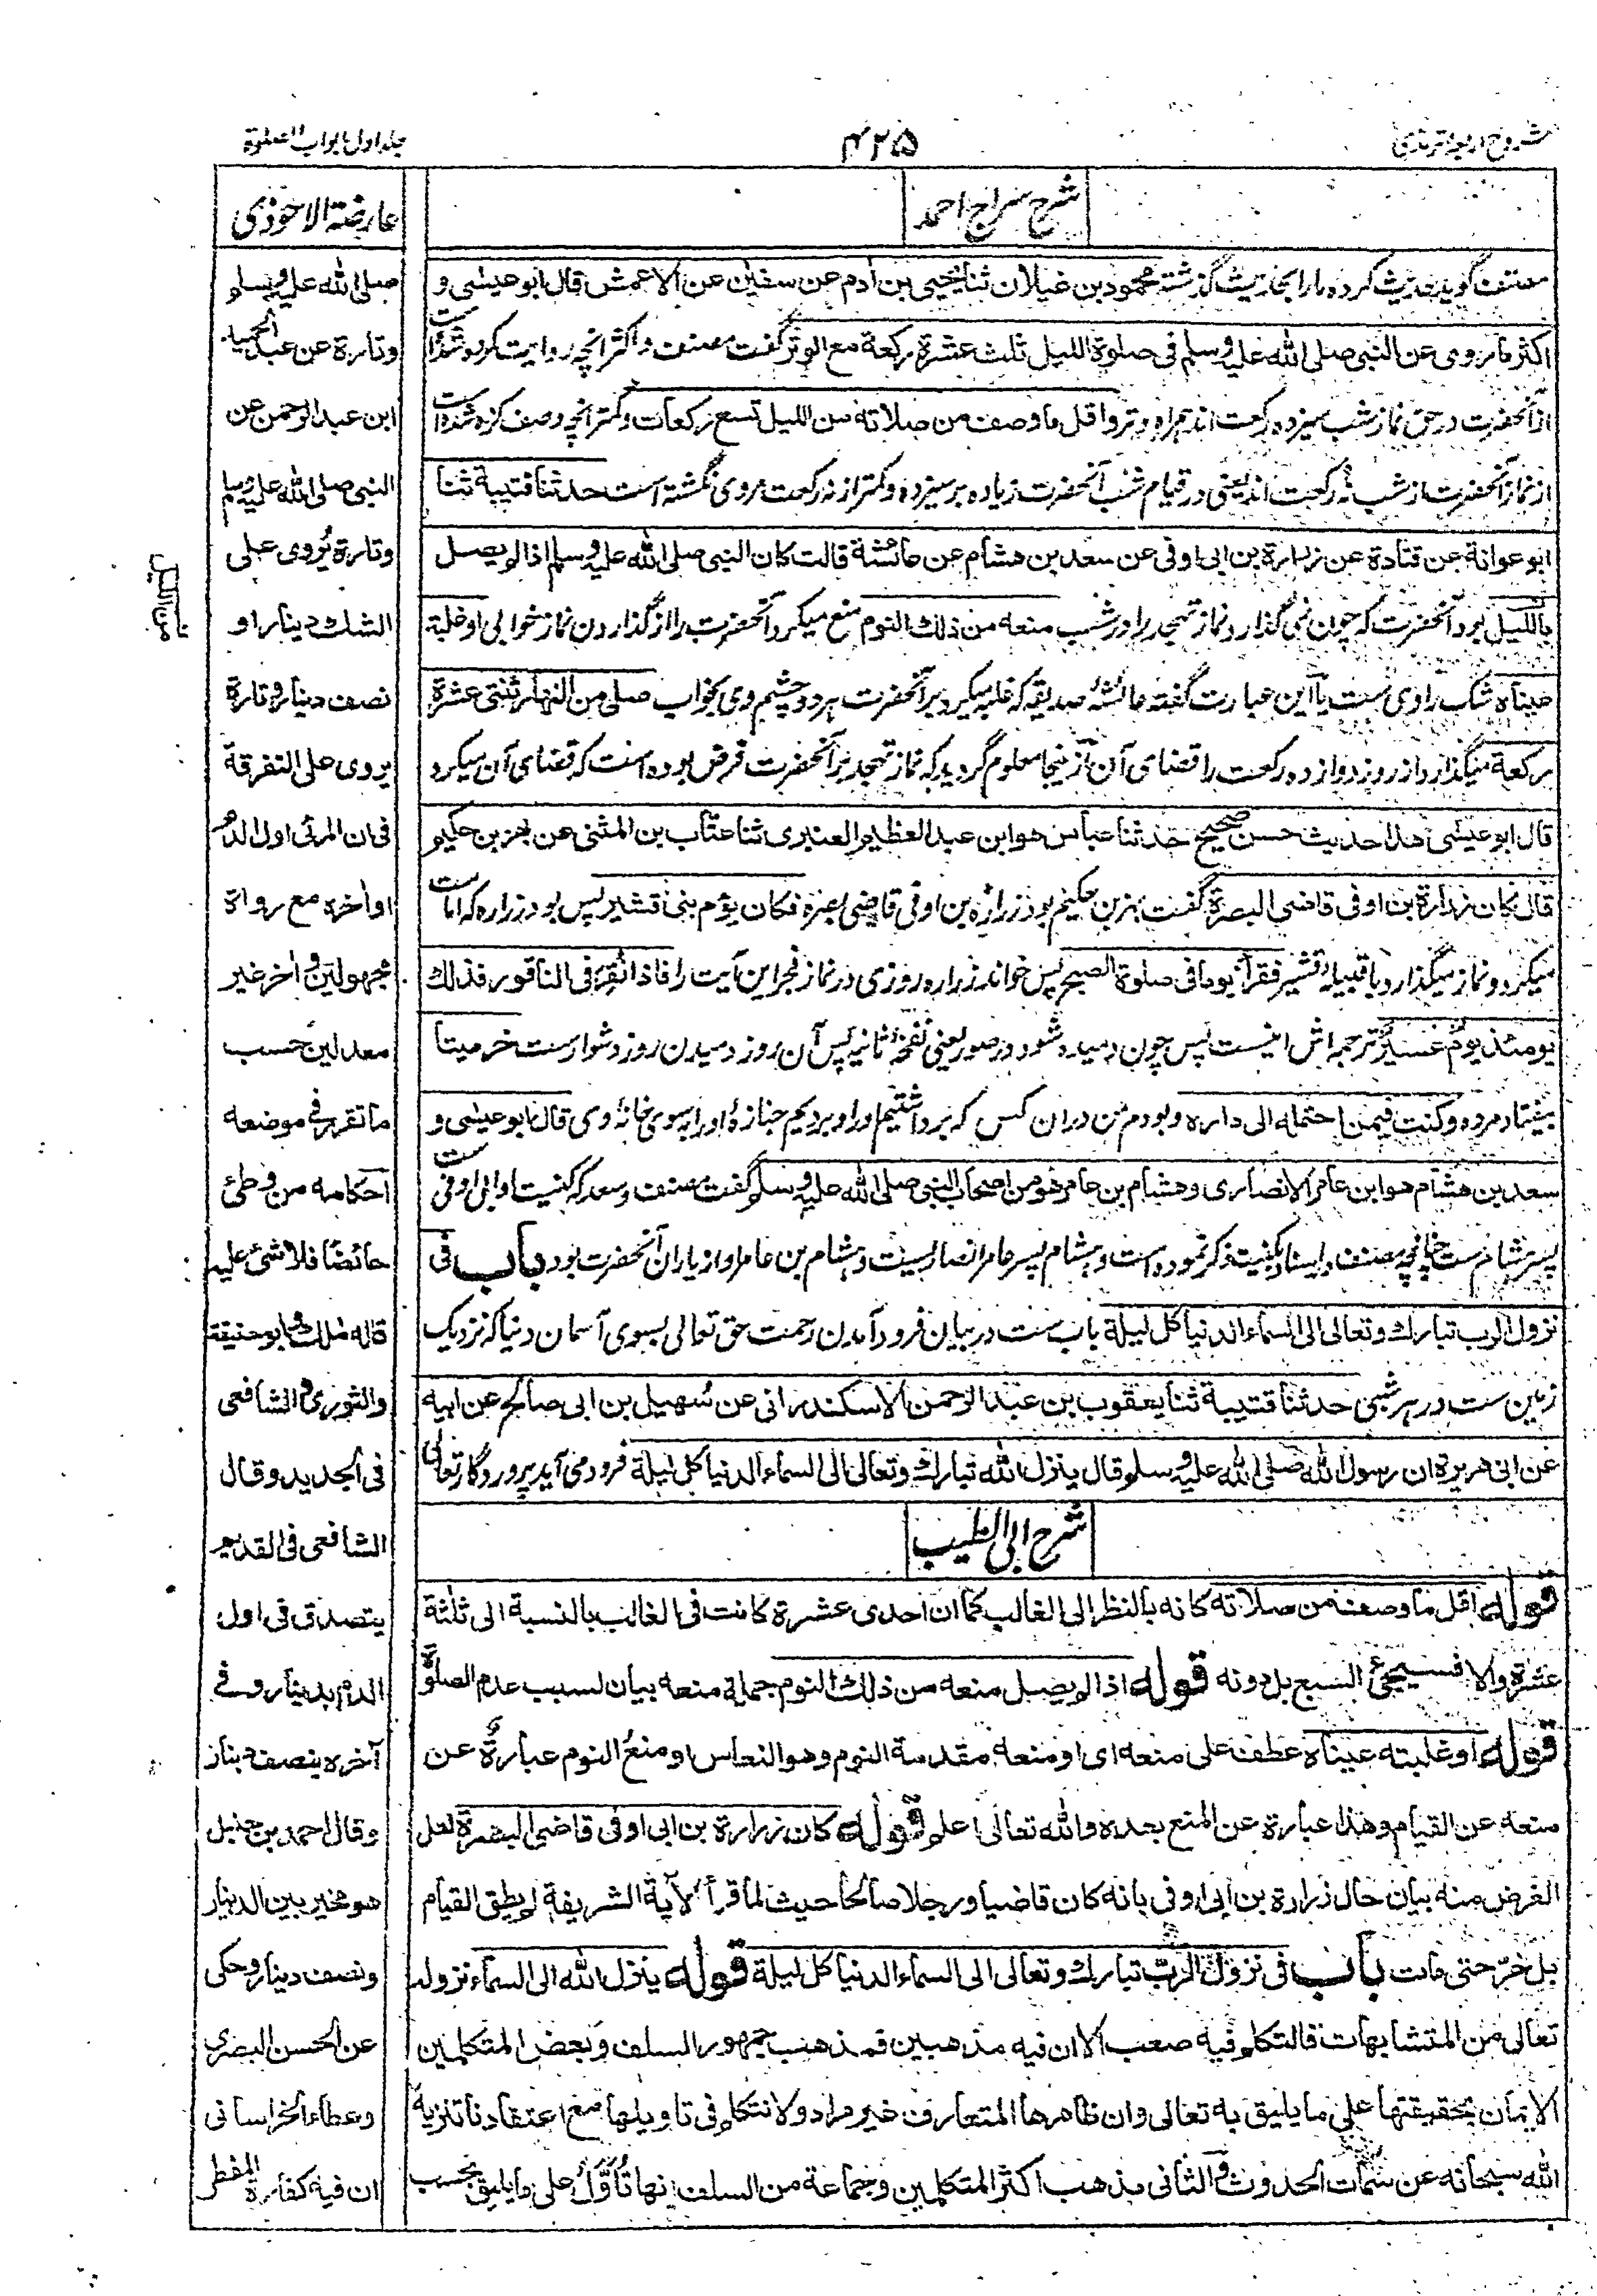 شروح اربعه ترمذی
۴۲۵
جلد اول ابواب الصلوة
شرح سراج احمد
مصنف گوید حدیث کرده مارا بحدیث گزشته محمود بن غیلان ثنا یحیی بن ادم عن سفین عن الاعمش قال ابو عیسی و
اکثر ما روی عن النبی صلی الله علیه وسلم فی صلوة اللیل ثلث عشرة رکعة مع الوتر گفت مصنف و اکثر انچه روایت کرده شده است
از آنحضرت در حق نماز شب سیزده رکعت اند همراه وتر و اقل ما وصف من صلاته من اللیل تسع رکعات و کمتر انچه وصف کرده شده است
از نماز آنحضرت از شب نه رکعت اند یعنی در قیام شب آنحضرت زیاده بر سیزده و کمتر از نه رکعت مروی نگشته است حدثنا قتیبة ثنا
ابو عوانة عن قتادة عن زرارة بن ابی اوفی عن سعد بن هشام عن عائشة قالت کان النبی صلی الله علیه وسلم اذا لم یصل
باللیل بود آنحضرت که چون نمی گذارد نماز تهجد را در شب منعه من ذلك النوم منع میکرد آنحضرت را از گذاردن نماز خوابی او غلبة
عیناه شک راوی ست یا این عبارت گفته عائشه صدیقه که غلبه میکرد بر آنحضرت هر دو چشم وی بخواب صلی من النهار ثنتی عشرة
رکعة میگذارد از روز دوازده رکعت را قضای آن از ینجا معلوم گردید که نماز تهجد بر آنحضرت فرض بوده است که قضای آن میکرد
قال ابو عیسی هذا حدیث حسن صحیح حدثنا عباس هو ابن عبد العظیم العنبری ثنا عتاب بن المثنی عن بهز بن حکیم
قال کان زرارة بن اوفی قاضی البصرة گفت بهز بن حکیم بود زراره بن اوفی قاضی بصره فکان یؤم بنی قشیر پس بود زراره که امامت
میکرد و نماز میگذارد با قبیله قشیر فقرأ یوما فی صلوة الصبح پس خواند زراره روزی در نماز فجر این آیت را فاذا نقر فی الناقور فذلك
یومئذ یوم عسیر ترجمه اش اینست پس چون دمیده شود در صور یعنی نفخهٔ ثانیه پس آن روز دمیدن روز دشوار ست خر میتا
بیفتاد مرده و کنت فیمن احتمله الی داره و بودم من دران کس که برداشتیم او را و بردیم جنازهٔ او را بسوی خانهٔ وی قال ابو عیسی و
سعد بن هشام هو ابن عامر الانصاری و هشام بن عامر هو من اصحاب النبی صلی الله علیه وسلم گفت مصنف و سعد که کنیت او ابی اوفی ست
پسر هشام ست چنانچه مصنف در اسناد بکنیت ذکر نموده است و هشام پسر عامر انصاریست و هشام بن عامر او از یاران آنحضرت بود باب فی
نزول الرب تبارك وتعالی الی السماء الدنیا کل لیلة باب ست در بیان فرود آمدن رحمت حق تعالی بسوی آسمان دنیا که نزدیک
زمین ست در هر شبی حدثنا قتیبة ثنا یعقوب بن عبد الرحمن الاسکندرانی عن سهیل بن ابی صالح عن ابیه
عن ابی هریرة ان رسول الله صلی الله علیه وسلم قال ینزل الله تبارك وتعالی الی السماء الدنیا کل لیلة فرود می آید پروردگار تعالی
شرح ابی الطیب
قوله اقل ما وصف من صلاته کانه بالنظر الی الغالب کما ان احدی عشرة کانت فی الغالب بالنسبة الی ثلثة
عشرة والا فسیجئ السبع بل دونه قوله اذا لم یصل منعه من ذلك النوم جملة منعه بیان لسبب عدم الصلوة
قوله او غلبته عیناه عطف علی منعه ای او منعه مقدمة النوم وهو النعاس او منع النوم عبارة عن
منعه عن القیام وهذا عبارة عن المنع بعده والله تعالی اعلم قوله کان زرارة بن ابی اوفی قاضی البصرة لعل
الغرض منه بیان حال زرارة بن ابی اوفی بانه کان قاضیا ورجلا صالحا حیث لما قرأ الآیة الشریفة لم یطق القیام
بل خر حتی مات باب فی نزول الرب تبارك وتعالی الی السماء الدنیا کل لیلة قوله ینزل الله الی السماء نزوله
تعالی من المتشابهات فالتکلم فیه صعب الا ان فیه مذهبین فمذهب جمهور السلف وبعض المتکلمین
الایمان بحقیقتها علی ما یلیق به تعالی وان ظاهرها المتعارف غیر مراد ولا نتکلم فی تاویلها مع اعتقادنا تنزیه
الله سبحانه عن سمات الحدوث والثانی مذهب اکثر المتکلمین وجماعة من السلف انها تأول علی ما یلیق بحسب
عارضة الاحوذی
صلی الله علیه وسلم
وتارة عن عبد الحمید
ابن عبد الرحمن عن
النبی صلی الله علیه وسلم
وتارة یروی علی
الشك دینار او
نصف دینار وتارة
یروی علی التفرقة
فی ان المرئی اول الدم
او اخره مع رواة
مجهولین واخر غیر
معدلین حسب
ما تقرر فی موضعه
احکامه من وطئ
حائضا فلا شئ علیه
قاله ملك وابو حنیفة
والثوری والشافعی
فی الجدید وقال
الشافعی فی القدیم
یتصدق فی اول
الدم بدینار وفی
آخره بنصف دینار
وقال احمد بن حنبل
هو مخیر بین الدینار
ونصف دینار وحکی
عن الحسن البصری
وعطاء الخراسانی
ان فیه کفارة المفطر